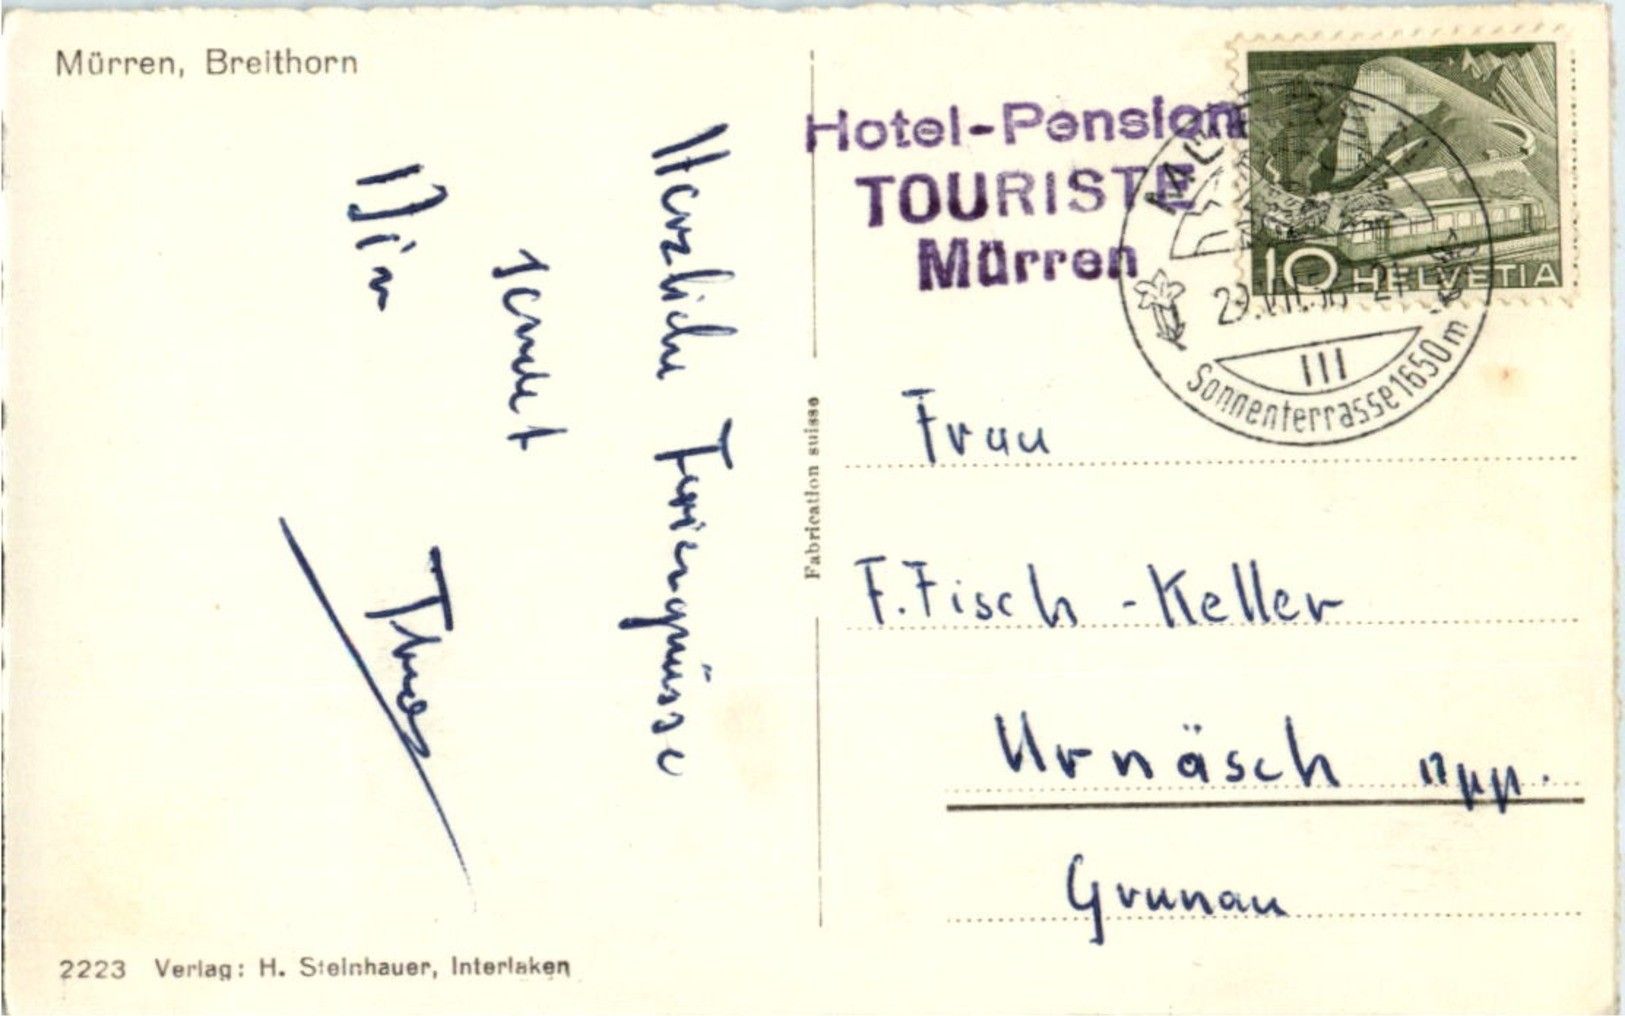 Mürren, Breithorn
Herzliche Feriengrüsse
sendet
Dir
Hotel-Pension
TOURISTE
Mürren
10 HELVETIA
III
Sonnenterrasse 1650 m
Fabrication suisse
Frau
F. Fisch - Keller
Urnäsch App.
Grunau
2223 Verlag: H. Steinhauer, Interlaken